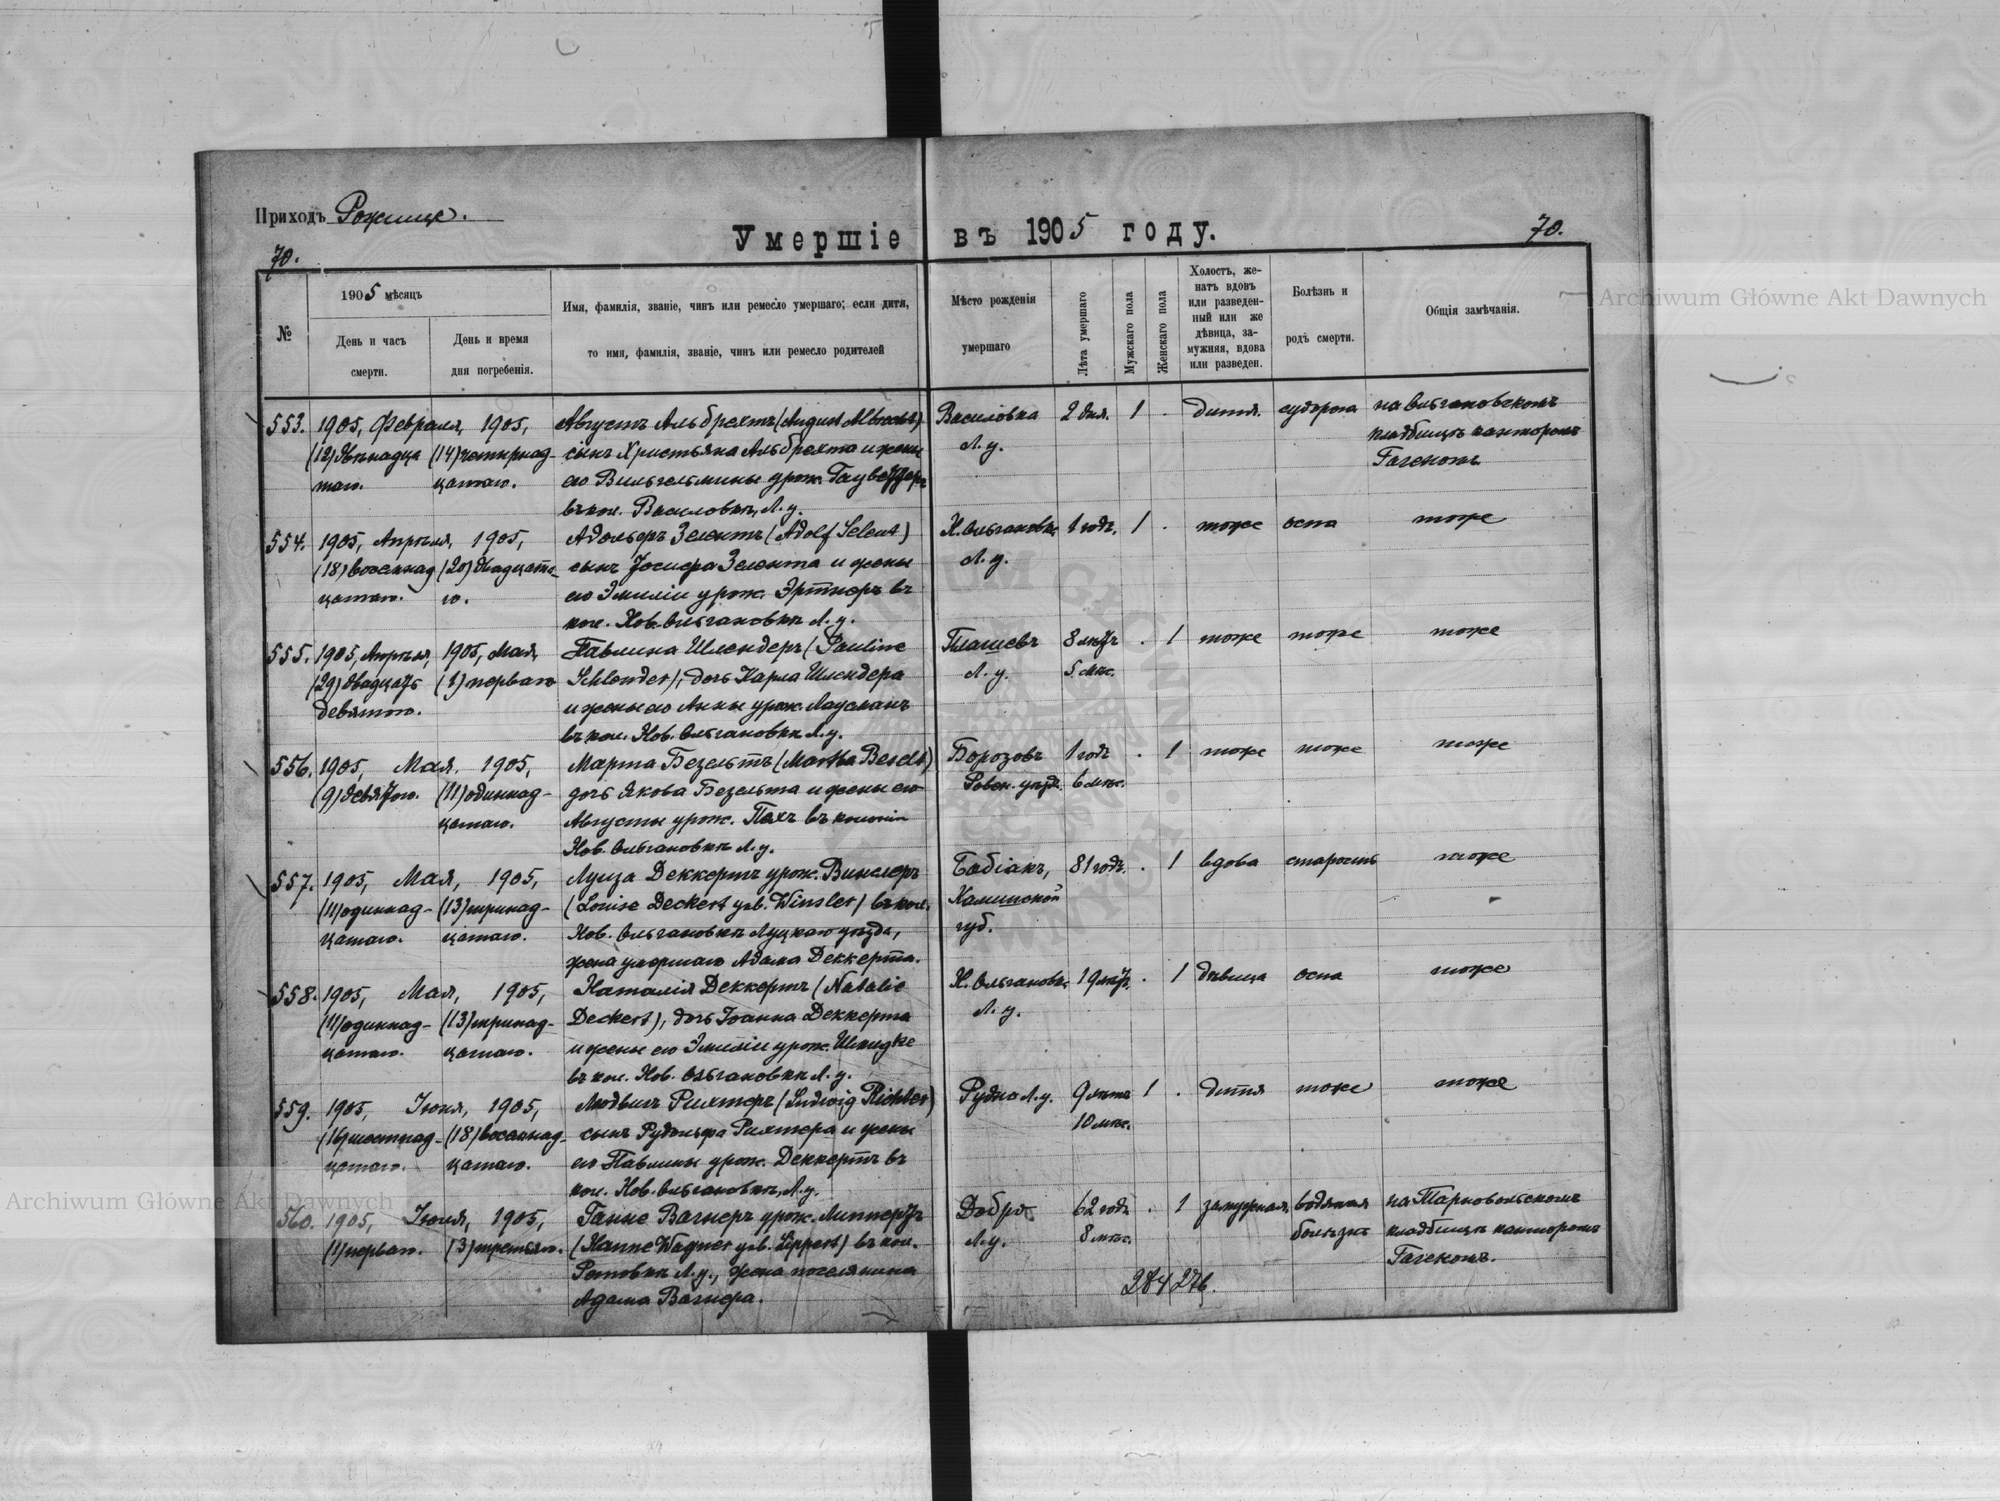 Приходъ Рожище.
Умершіе въ 1905 году.
70.
70.
№
1905 мѣсяцъ
День и часъ смерти.
День и время дня погребенія.
Имя, фамилія, званіе, чинъ или ремесло умершаго; если дитя,
то имя, фамилія, званіе, чинъ или ремесло родителей
Мѣсто рожденія умершаго
Лѣта умершаго
Мужскаго пола
Женскаго пола
Холостъ, же-
натъ вдовъ
или разведен-
ный или же
дѣвица, за-
мужняя, вдова
или разведен.
Болѣзнь и
родъ смерти.
Общія замѣчанія.
553. 1905, Февраля, 1905, Августъ Альбрехтъ (August Albrecht) Василовка 2 дня. 1 . дитя. судорога на Ольгановскомъ
(12) двѣнадца (14) четырнад- сынъ Христьяна Альбрехта и жены Л. у. кладбищѣ канторомъ
таго. цатаго. его Вильгельмины урож. Гагеномъ
въ кол. Василовкѣ, Л. у.
554. 1905, Апрѣля, 1905, Адольфъ Зелентъ (Adolf Selent) Н. Ольгановка 1 годъ. 1 . тоже оспа тоже
(18) восемнад (20) двадцата- сынъ Іосифа Зелента и жены Л. у.
цатаго. го. его Эмиліи урож. Эртнеръ въ
кол. Нов. Ольгановкѣ Л. у.
555. 1905, Апрѣля, 1905, Мая, Павлина Шлендеръ (Pauline Плашевъ 8 лѣтъ . 1 тоже тоже тоже
(29) двадцать (1) перваго Schlender), дочь Карла Шлендера Л. у. 5 мѣс.
девятаго. и жены его Анны урож. Лаусманъ
въ кол. Нов. Ольгановкѣ Л. у.
556. 1905, Мая. 1905, Марта Безельтъ (Martha Beselt) Борозовъ 1 годъ . 1 тоже тоже тоже
(9) девятаго. (11) одиннад- дочь Якова Безельта и жены его Ровен. уѣзд. 6 мѣс.
цатаго. Августы урож. въ колоніи
Нов. Ольгановкѣ Л. у.
557. 1905, Мая, 1905, Луиза Деккертъ урож. Винслеръ Бабіакъ, 81 годъ. . 1 вдова старость тоже
(11) одиннад- (13) тринад- (Louise Deckert geb. Winsler) въ кол. Калишской
цатаго. цатаго. Нов. Ольгановкѣ Луцкаго уѣзда, губ.
жена умершаго Адама Деккерта.
558. 1905, Мая, 1905, Наталія Деккертъ (Natalie Н. Ольгановк. 19 лѣтъ. . 1 дѣвица оспа тоже
(11) одиннад- (13) тринад- Deckert), дочь Іоанна Деккерта Л. у.
цатаго. цатаго. и жены его Эмиліи урож. Шмидке
въ кол. Нов. Ольгановкѣ Л. у.
559. 1905, Іюня, 1905, Людвигъ Рихтеръ (Ludwig Richter) Рудня Л. у. 9 лѣтъ 1 . дитя тоже тоже
(16) шестнад- (18) восемнад- сынъ Рудольфа Рихтера и жены 10 мѣс.
цатаго. цатаго. его Павлины урож. Деккертъ въ
кол. Нов. Ольгановкѣ, Л. у.
560. 1905, Іюня, 1905, Ганне Вагнеръ урож. Липпертъ Добре 62 годъ . 1 замужная водяная на Тарновольскомъ
(1) перваго. (3) третьяго. (Hanne Wagner geb. Lippert) въ кол. Л. у. 8 мѣс. болѣзнь кладбищѣ канторомъ
Л. у., жена поселянина Гагеномъ.
Адама Вагнера.
284 276.
Archiwum Główne Akt Dawnych
Archiwum Główne Akt Dawnych